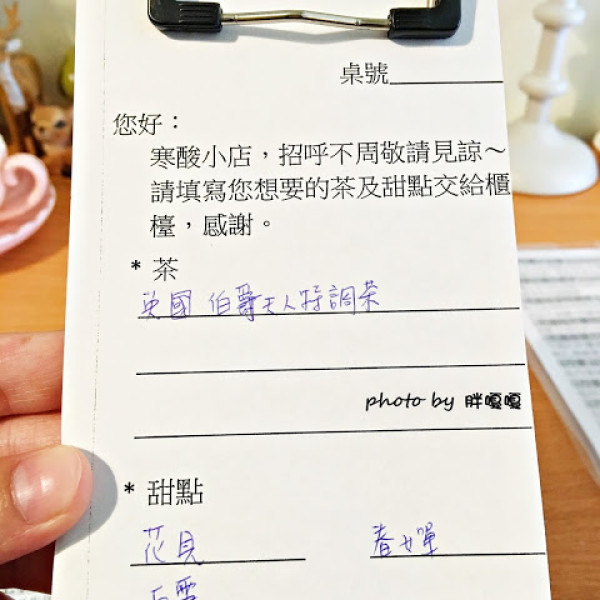 桌號
您好：
寒酸小店，招呼不周敬請見諒～
請填寫您想要的茶及甜點交給櫃
檯，感謝。
* 茶
英國 伯爵夫人特調茶
photo by 胖嘎嘎
* 甜點
花見 春嬋